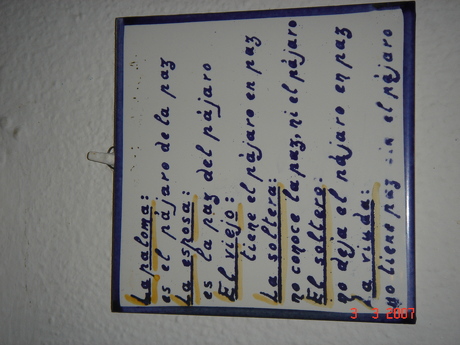 La paloma:
es el pájaro de la paz
La esposa:
es la paz del pájaro
El viejo:
tiene el pájaro en paz
La soltera:
no conoce la paz, ni el pájaro
El soltero:
no deja el pájaro en paz
La viuda:
no tiene paz sin el pájaro
3 3 2007